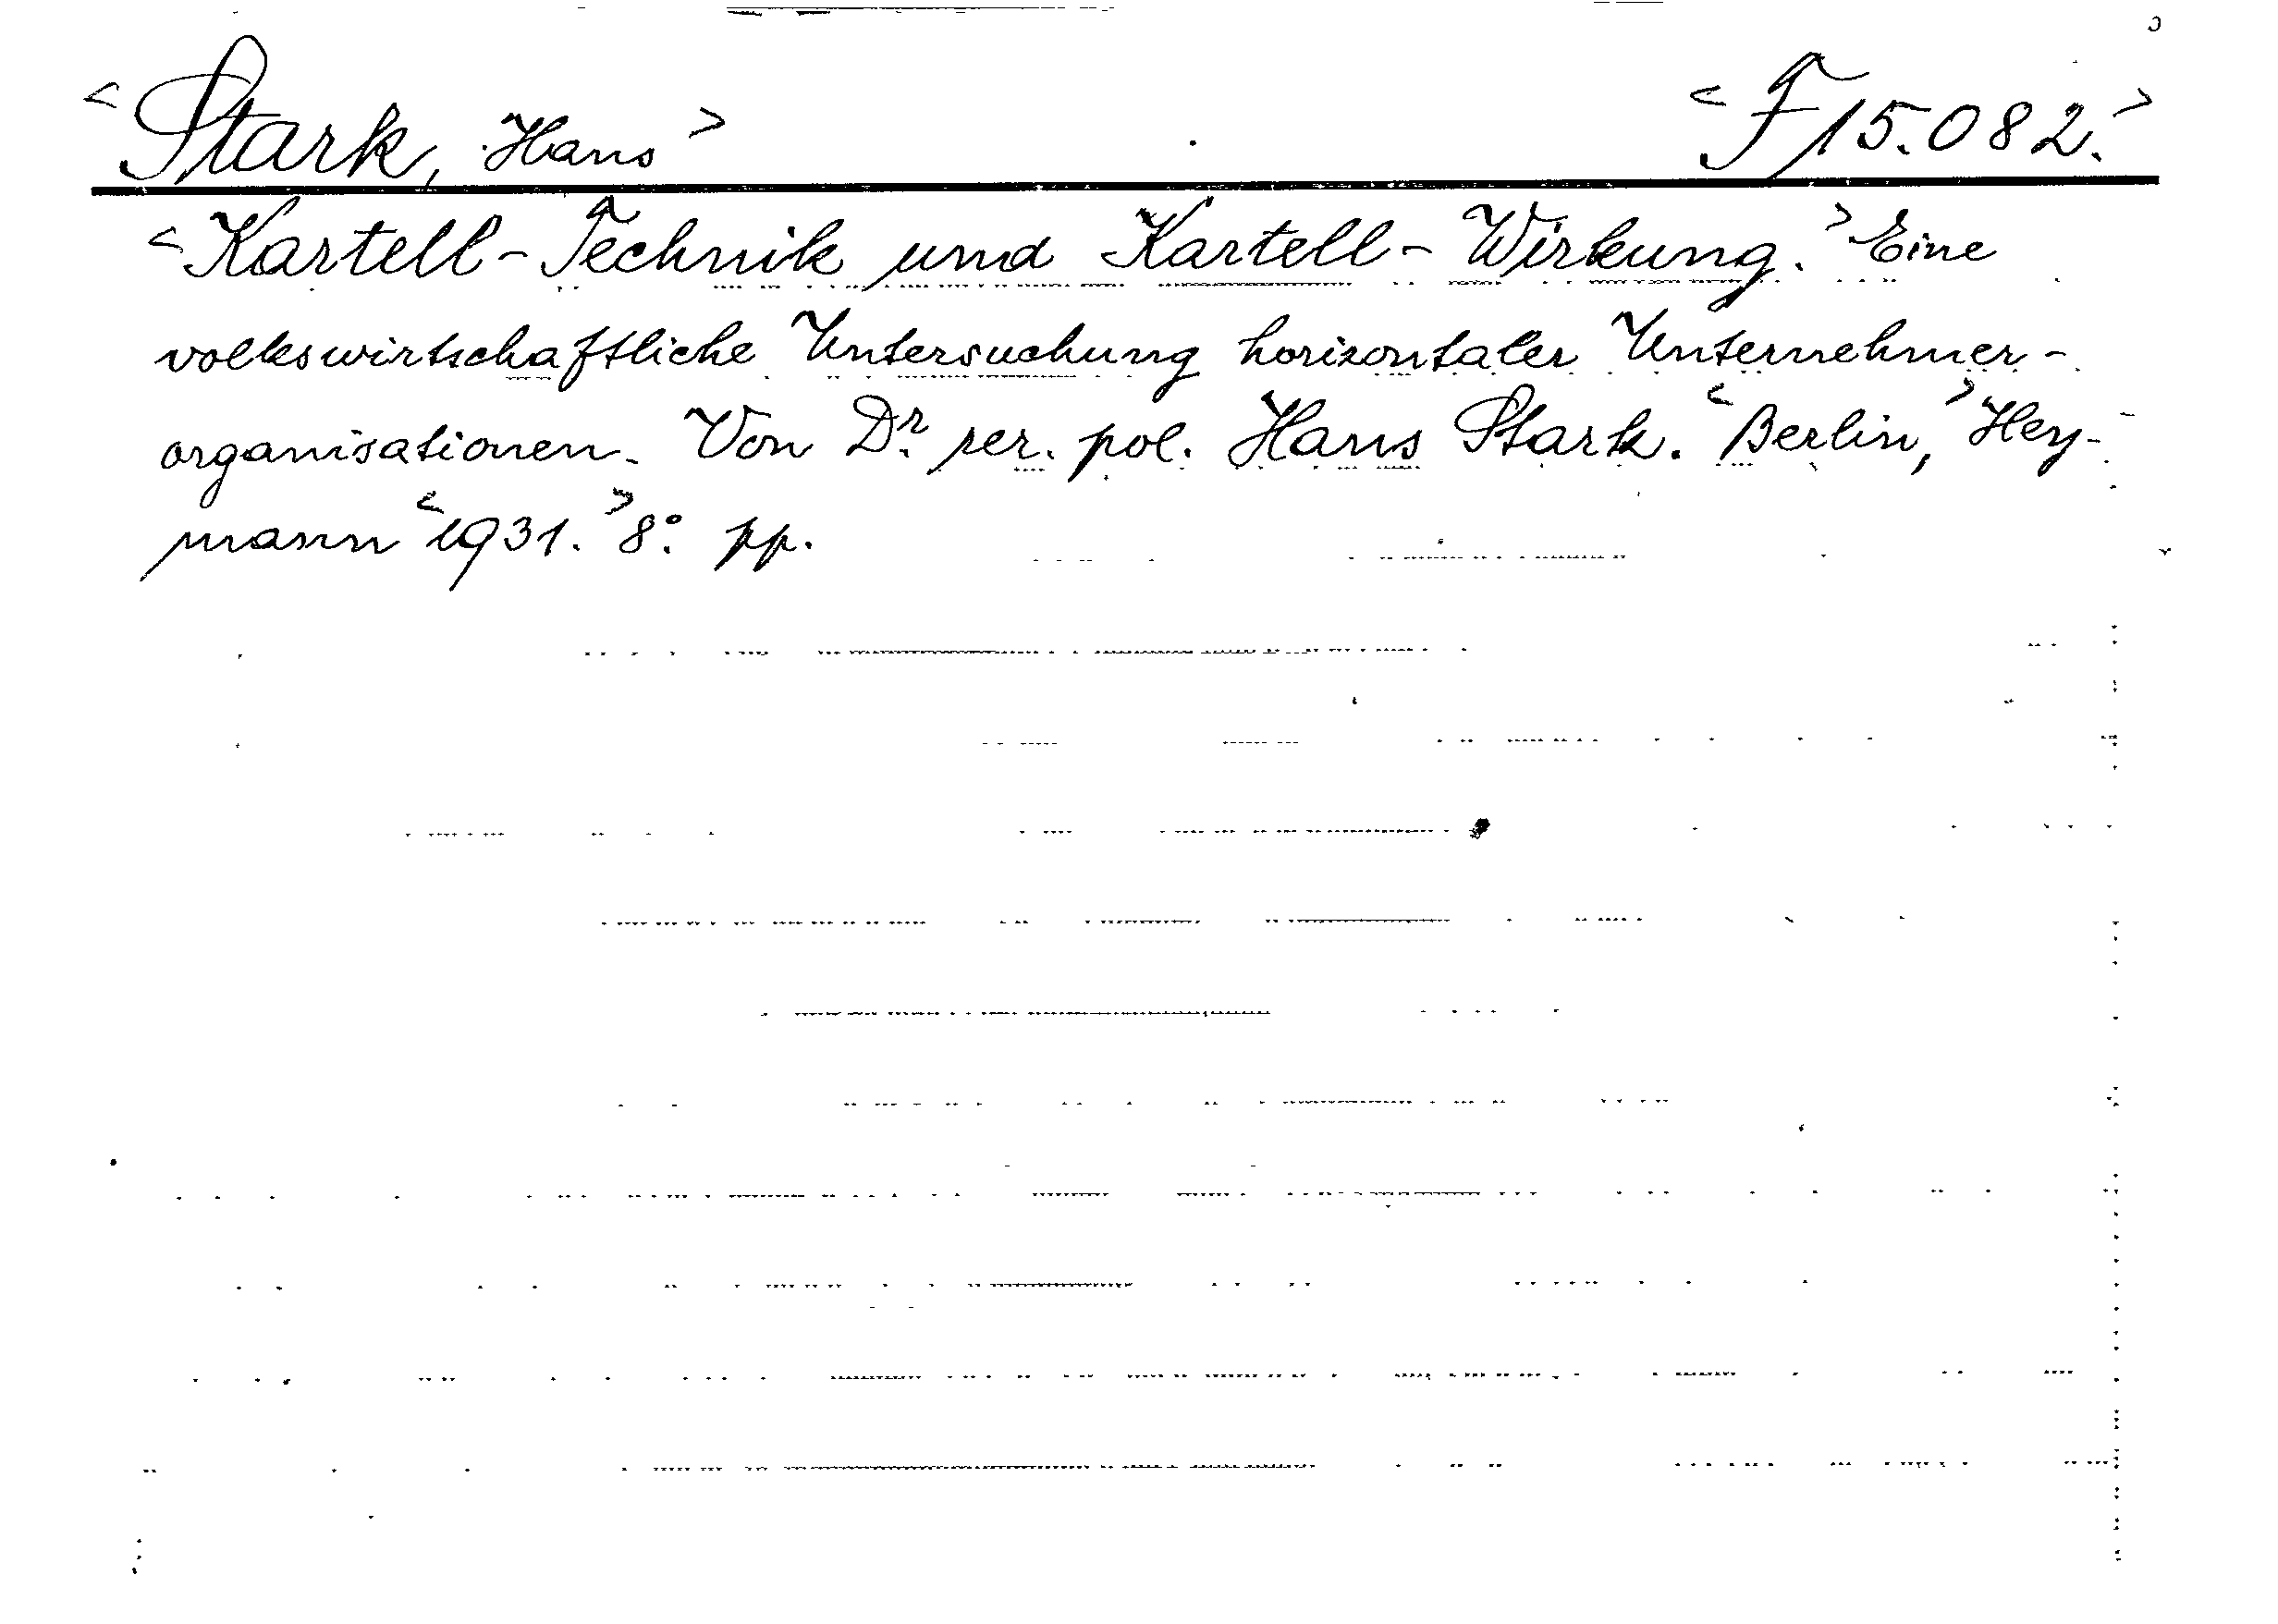 <Stark, Hans> <F 15.082.>
<Kartell-Technik und Kartell-Wirkung.> Eine
volkswirtschaftliche Untersuchung horizontaler Unternehmer-
organisationen. Von Dr. rer. pol. Hans Stark. <Berlin,> Hey-
mann <1931.> 8° pp.